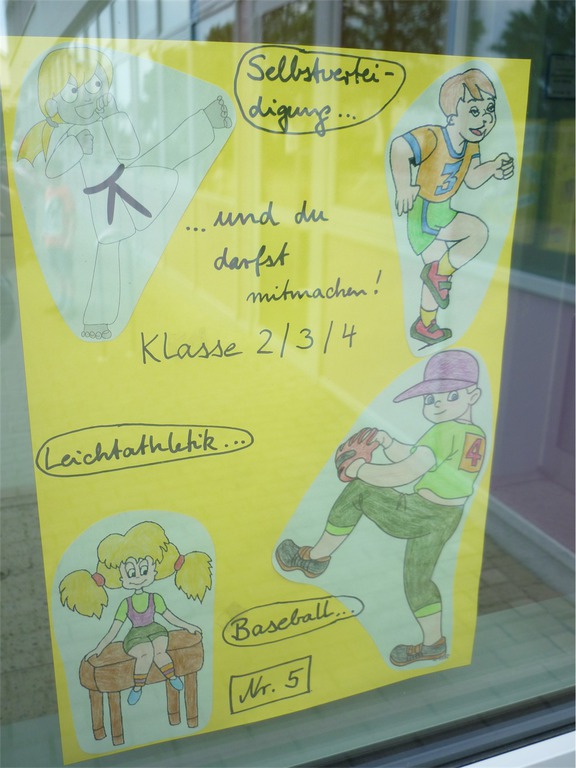 Selbstvertei-
digung...
3
...und du
darfst
mitmachen!
Klasse 2/3/4
Leichtathletik...
4
Baseball...
Nr. 5